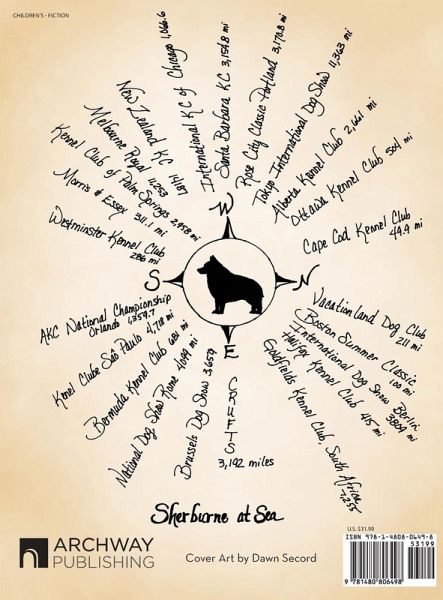 CHILDREN'S - FICTION
International KC of Chicago 1,066.6
Santa Barbara KC 3,154.8 mi
Rose City Classic Portland 3,170.8 mi
Tokyo International Dog Show 11,363 mi
Alberta Kennel Club 2,661 mi
Ottawa Kennel Club 504 mi
Cape Cod Kennel Club
49.9 mi
New Zealand KC 14187
Melbourne Royal 11,253
Kennel Club of Palm Springs 2,958 mi
Morris & Essex 311.1 mi
Westminster Kennel Club
286 mi
W
S
N
E
AKC National Championship
Orlando 1,359.7
Kenel Clube São Paulo 4,718 mi
Bermuda Kennel Club 661 mi
National Dog Show Rome 4,099 mi
Brussels Dog Show 3,659
CRUFTS
3,192 miles
Vacationland Dog Club
211 mi
Boston Summer Classic
100 mi
International Dog Show Berlin
3804 mi
Halifax Kennel Club 415 mi
Goldfields Kennel Club, South Africa
7,255
Sherburne at Sea
ARCHWAY
PUBLISHING
Cover Art by Dawn Secord
U.S. $31.99
ISBN 978-1-4808-0649-8
53199
9 781480 806498